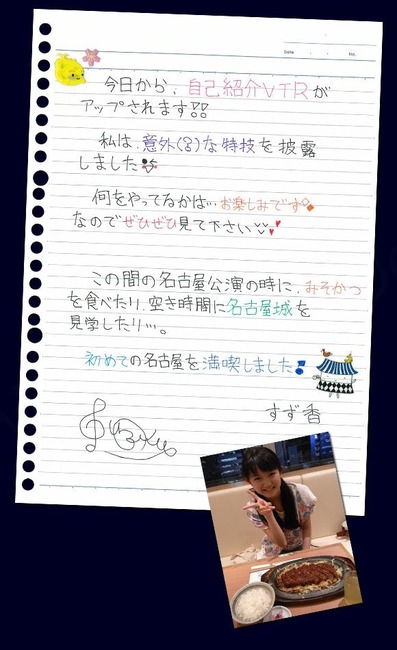 Date . . No.
今日から、自己紹介VTRが
アップされます!!
私は、意外(?)な特技を披露
しました
何をやってるかは…お楽しみです
なのでぜひぜひ見て下さい
この間の名古屋公演の時に、みそかつ
を食べたり、空き時間に名古屋城を
見学したり…。
初めての名古屋を満喫しました!
すず香